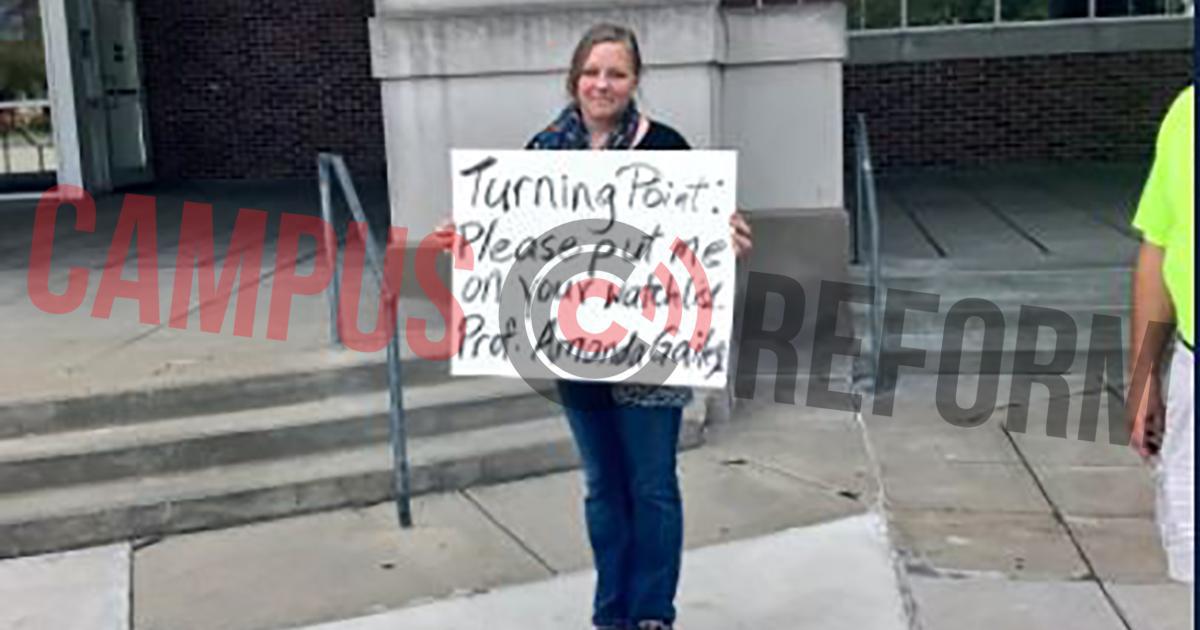 Turning Point:
Please put me
on your watchlist.
Prof. Amanda Gailey
CAMPUS REFORM